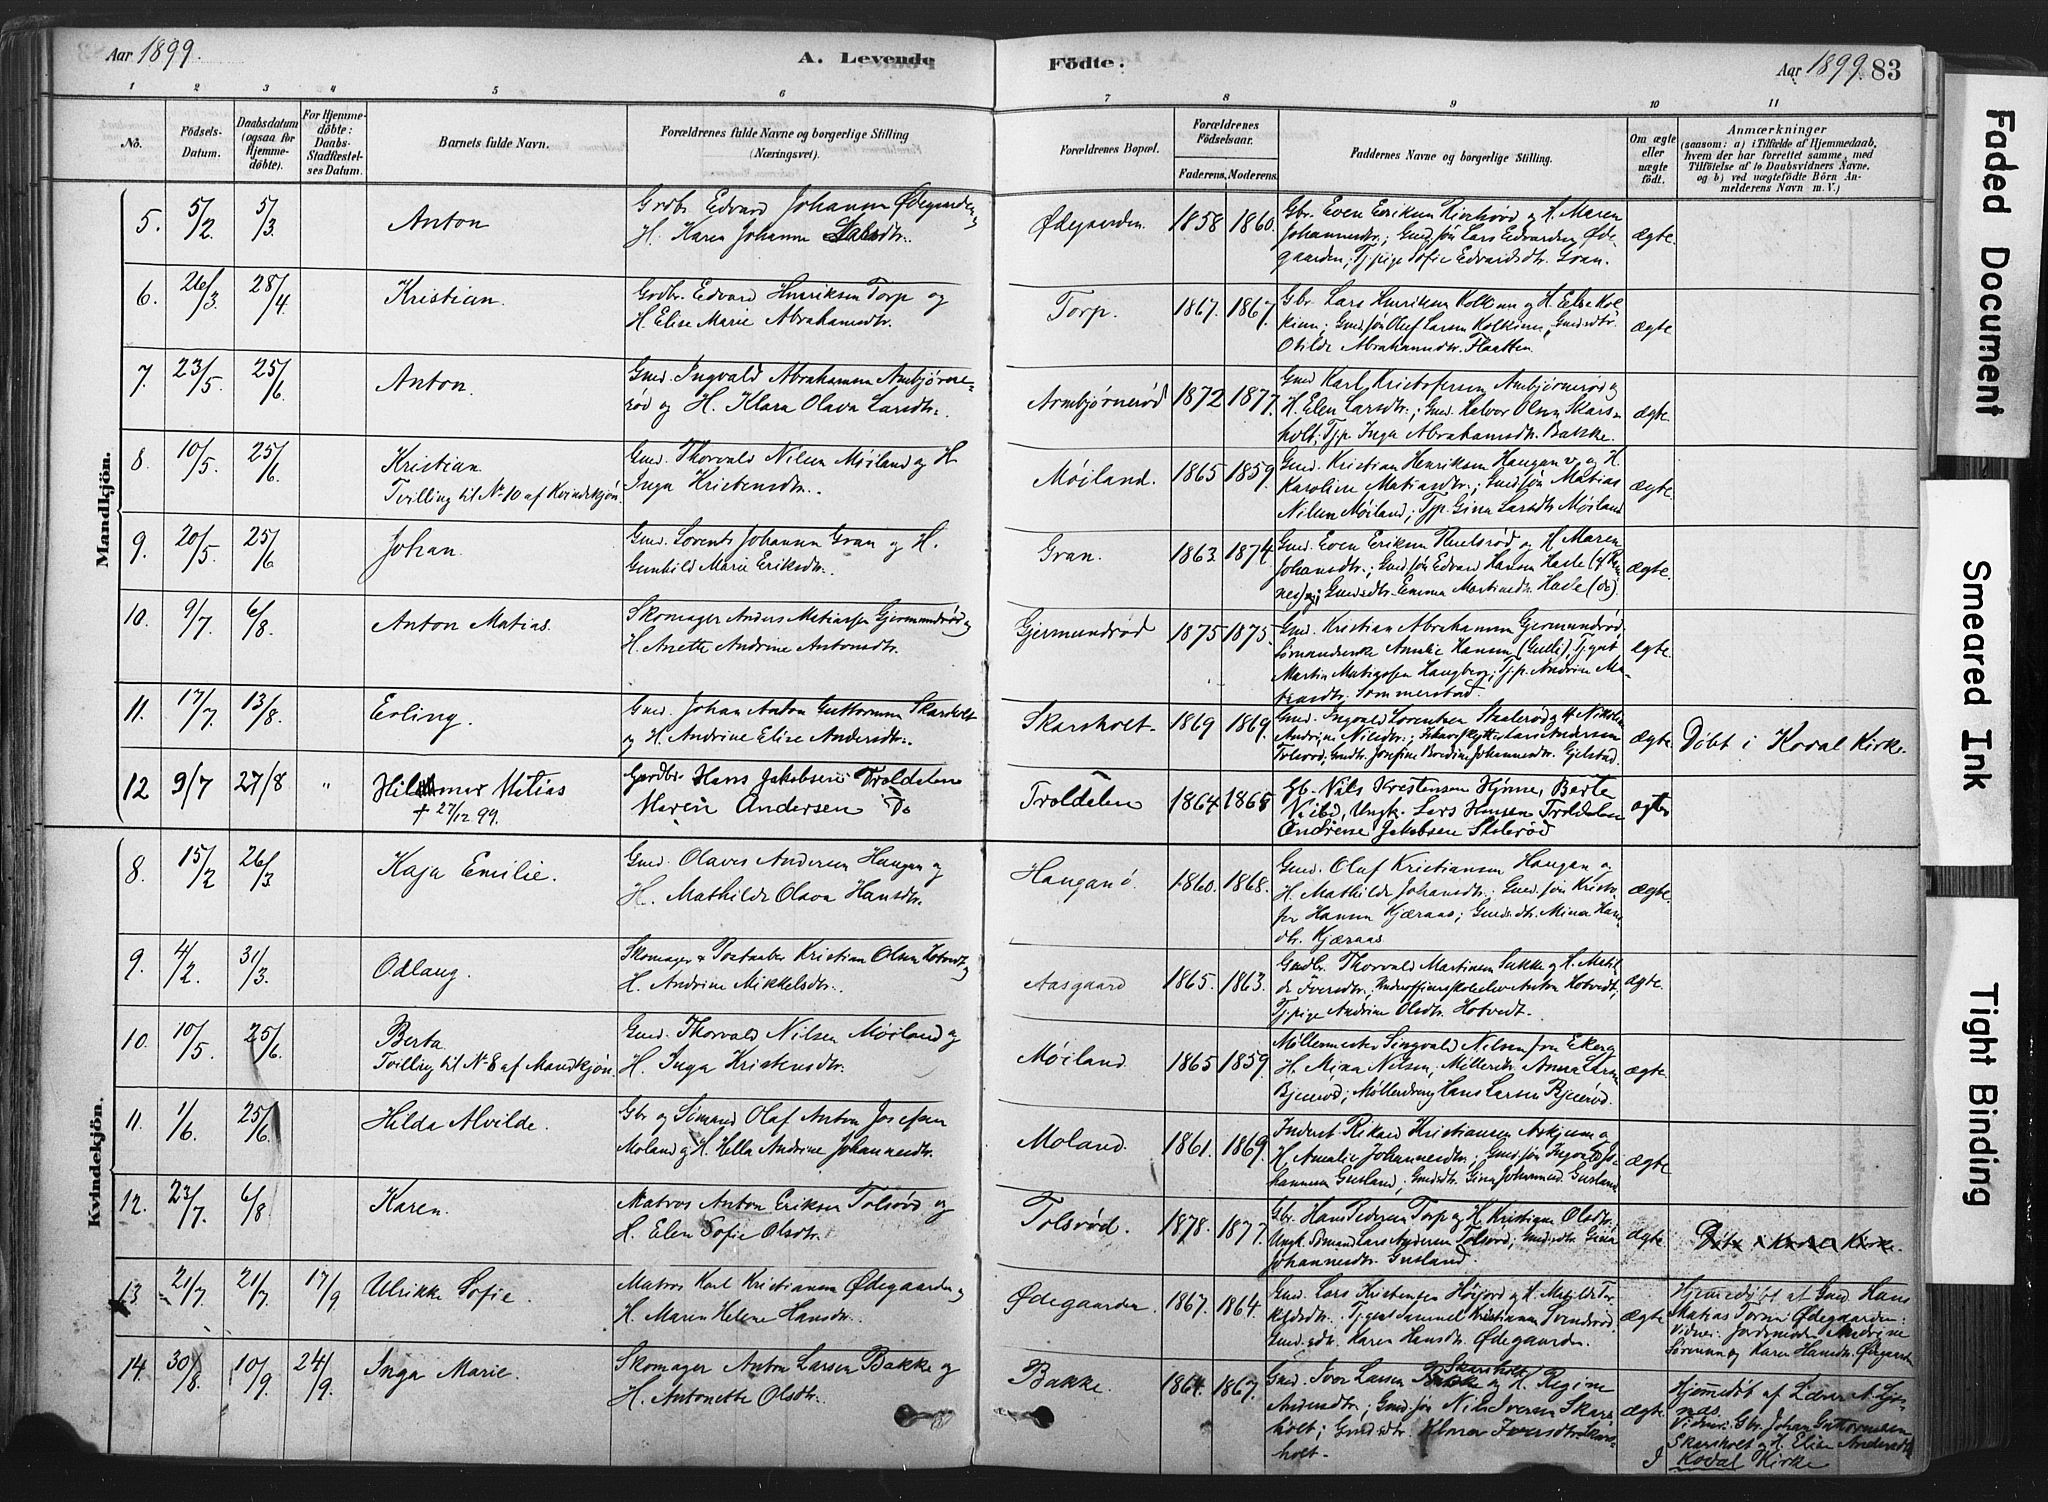 Aar 1899.
A. Levende
Födte:
Aar 1899. 83
1 2 3 4 5 6 7 8 9 10 11
No.
Födsels-
Datum.
Daabsdatum
(ogsaa for
Hjemme-
döbte).
For Hjemme-
döbte:
Daabs-
Stadfæstel-
ses Datum.
Barnets fulde Navn.
Forældrenes fulde Navne og borgerlige Stilling
(Næringsvei).
Forældrenes Bopæl.
Forældrenes
Födselsaar.
Faderens. Moderens.
Faddernes Navne og borgerlige Stilling.
Om ægte
eller
uægte
födt.
Anmærkninger
(saasom: a) i Tilfælde af Hjemmedaab,
hvem der har forrettet samme, med
Tilföielse af to Daabsvidners Navne,
og b) ved uægtefödte Börn An-
melderens Navn m. V.)
Mandkjön.
5. 5/2 5/3 Anton
Grdbr. Edvard Johansen Ødegaarden
H. Karen Johanne Larsdtr.
Ødegaarden. 1858 1860.
Gbr. Even Eriksen og H. Maren
Johannesdtr.; Gmd.søn Lars Edvardsen Øde-
gaarden; Tj.pige Sofie Edvardsdtr. Gran.
ægte.
6. 26/3 28/4 Kristian.
Grdbr. Edvard Henriksen Torp og
H. Elise Marie Abrahamsdtr.
Torp. 1867. 1867.
Gbr. Lars Henriksen Kolkinn og H. Elise Kol-
kinn; Gmd.søn Oluf Larsen Kolkinn, Gmd.sdtr.
Otilde Abrahamsdtr. Flaatten.
ægte.
7. 23/5. 25/6 Anton.
Gmd. Ingvald Abrahamsen Arnbjørne-
rød og H. Klara Olava Larsdtr.
Arnbjørnerød 1872 1877.
Gmd Karl Kristofersen Arnbjørnerød og
H. Elen Larsdtr.; Gmd. Halvor Olsen Skars-
holt; Tj.p. Inga Abrahamsdtr. Bakke.
ægte.
8. 10/5. 25/6 Kristian
Tvilling til No 10 af Kvindekjøn.
Gmd. Thorvald Nilsen Møiland og H
Inga Kristensdtr.
Møiland. 1865 1859.
Gmd. Kristian Henriksen Haugan v. og H.
Karoline Matiasdtr.; Gmd.søn Matias
Nilsen Møiland; Tj.p. Gina Larsdtr Møiland
ægte.
9. 20/5. 25/6 Johan.
Gmd. Lorents Johansen Gran og H.
Gunhild Marie Eriksdtr.
Gran. 1863 1874.
Gmd. Even Eriksen og H Maren
Johansdtr.; Gmd.søn Edvard Hansen Hasle
Gmdsdtr. Emma Martinsdtr. Hasle (do).
ægte.
10. 9/7. 6/8. Anton Matias.
Skomager Anders Matiassen Gjermundrød og
H. Anette Andrine Antonsdtr.
Gjermundrød 1875 1875.
Gmd. Kristian Abrahamsen Gjermundrød.
Sømandsenke Amalie Hansen
Martin Matiassen Haugberg; Tj.p. Andrine Ma-
tiasdtr. Sommerstad.
ægte.
11. 17/7 13/8. Erling.
Gmd. Johan Anton Guttormsen Skarsholt
og H. Andrine Elise Andersdtr.
Skarsholt. 1869 1869.
Gmd. Ingvald Lorentsen og H Nikoline
Andrine Nilsdtr.; Lars Andersen
Tolsrød; Gmdsdtr. Josefine Johannesdtr. Gjelstad.
ægte. Døbt i Kodal Kirke.
12 9/7 27/8 " Hilmar Matias
† 27/12 99.
Gardbr. Hans Jakobsen Troldalen
Maren Andersen Do
Troldalen 1864 1865
Gb. Nils Kristensen Hjönne, Berte
Vibid, Ungk. Lars Hansen Troldalen
Andrene Jakobsen Skilsröd
ægte
Kvindekjön.
8. 15/2 26/3 Kaja Emilie.
Gmd. Olaves Andersen Haugan og
H. Mathilde Olava Hansdtr.
Haugan ø. 1860. 1868.
Gmd. Oluf Kristiansen Haugan og
H. Mathilde Johansdtr.; Gmd.søn Kristo-
fer Hansen Kjæraas; Gmdsdtr. Mina Hans-
dtr. Kjæraas.
ægte.
9. 4/2 31/3 Odlaug.
Skomager & Postaaber Kristian Olsen Hotvedt og
H. Andrine Mikkelsdtr.
Aasgaard 1865. 1863.
Gmdbr. Thorvald Martinsen Sukke og H. Matil-
de Iversdtr., Underofficerskoleelev Anton Hotvedt,
Tj.pige Andrine Olsdtr. Hotvedt.
ægte.
10. 10/5 25/6. Berta.
Tvilling til No 8 af Mandkjøn.
Gmd. Thorvald Nilsen Møiland og
H. Inga Kristensdtr.
Møiland 1865 1859.
Møllermester Singvald Nilsen fra Ekerg
H. Mina Nilsen, Anna Larsen
Bjuerød; Møllerdreng Hans Larsen Bjuerød.
ægte.
11. 1/6. 25/6. Hilda Alvilde.
Gbr og Sømand Olaf Anton Josefsen
Moland og H. Hella Andrine Johannesdtr.
Moland. 1861. 1869.
Inderst Rikard Kristiansen Askjem og
H Amalie Johannesdtr.; Gmd.søn Ingvald Jo-
hannesen Gusland; Gmdsdtr. Gina Johannesd. Gusland
ægte
12. 23/7. 6/8 Karen.
Matros Anton Eriksen Tolsrød og
H. Elen Sofie Olsdtr.
Tolsrød. 1878. 1877.
Gbr. Hans Pedersen Torp og H. Kristiane Olsdtr.
Ungk. Sømand Lars Andersen Tolsrød; Gmdsdtr. Gina
Johannesdtr Gusland.
ægte. Døbt i Kodal Kirke.
13. 21/7. 21/7. 17/9 Ulrikke Sofie.
Matros Karl Kristiansen Ødegaarden og
H. Maren Helene Hansdtr.
Ødegaarden. 1867. 1864.
Gmd. Lars Kristensen Høijord og H. Matilde Ter-
kelsdtr. Tjgut Samuel Kristiansen Svendsrød,
Gmdsdtr. Karen Hansdtr. Ødegaarden.
ægte
Hjemmedøbt af Gmd. Hans
Matias Ødegaarden:
Vidner: Jordemoder Andrine
Sørensen og Karen Hansdtr. Ødegaarden
14. 30/8. 10/9. 24/9. Inga Marie.
Skomager Anton Larsen Bakke og
H. Antonette Olsdtr.
Bakke. 1864. 1867.
Gmd. Iver Larsen Skarsholt og H. Regine
Andersdtr.; Gmd.søn Nils Iversen Skars-
holt; Gmdsdtr. Klara Iversdtr. Skars-
holt.
ægte.
Hjemmedøbt af Lærer A.
Vidner: Gbr. Johan Guttormsen
Skarsholt og H. Elise Andersdtr
I Kodal Kirke
Faded Document
Smeared Ink
Tight Binding